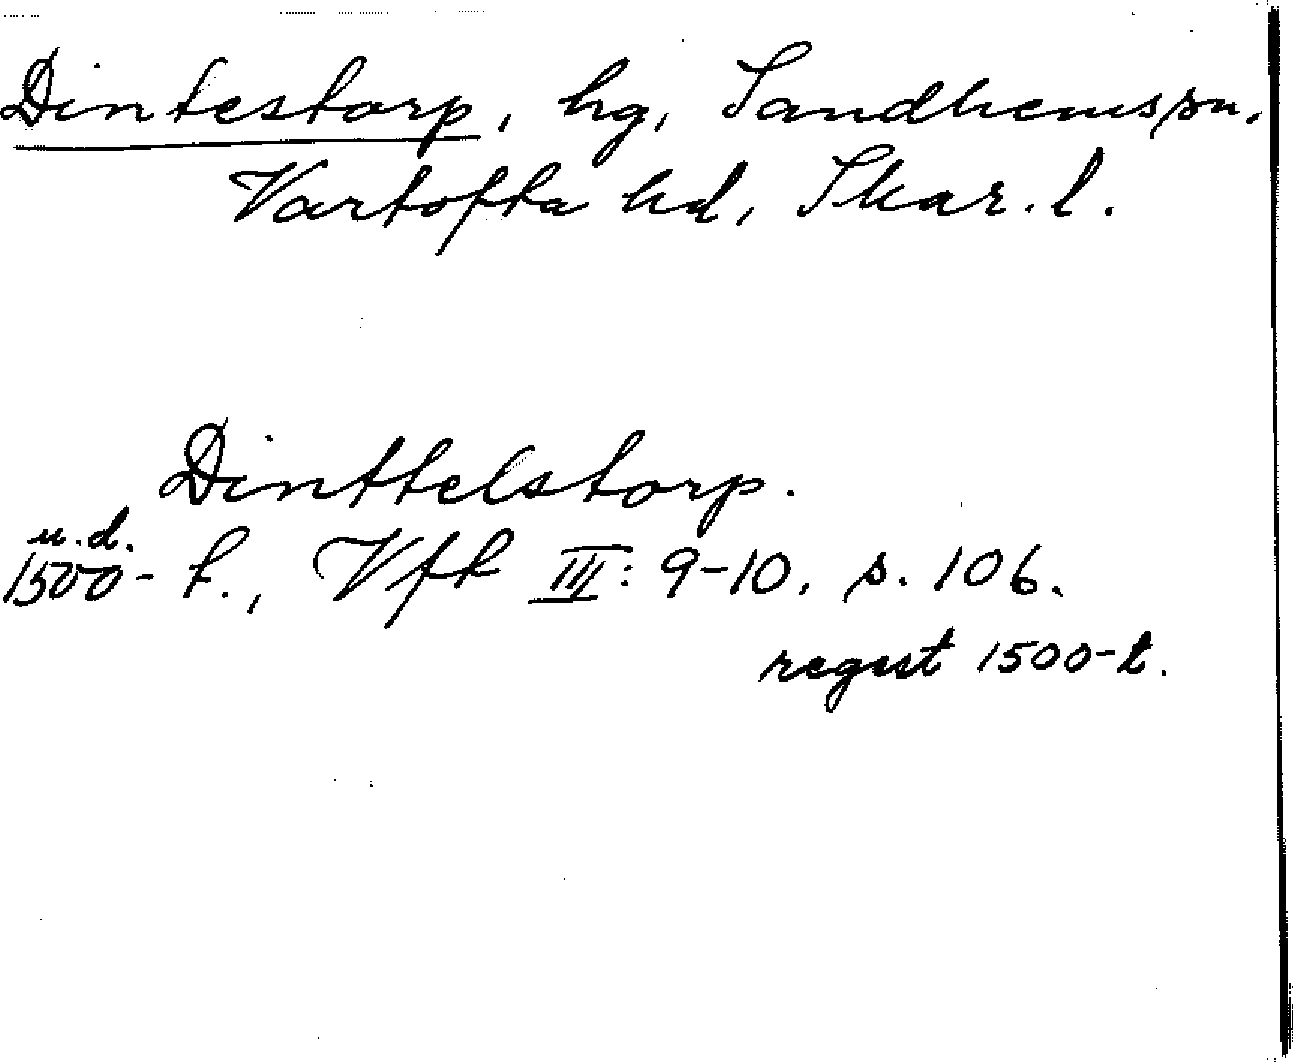 Dintestorp, hg, Sandhems sn.
Vartofta hd, Skar. l.
Dinttelstorp.
u.d.
1500-t., Vfk III: 9-10, s. 106.
regest 1500-t.